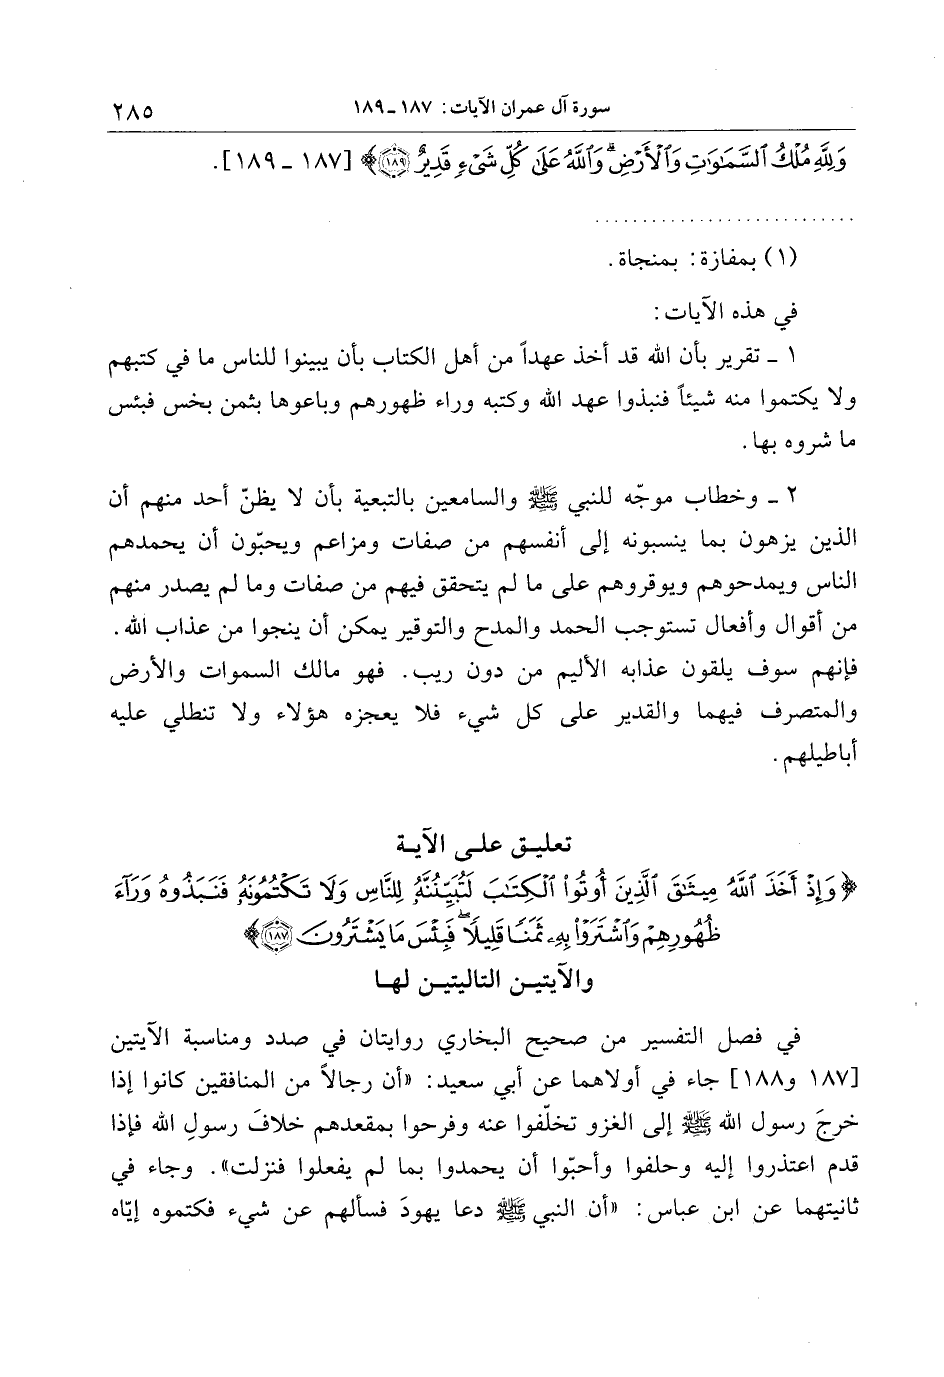 سورة آل عمران الآيات: ١٨٧ ـ ١٨٩ ٢٨٥
وَلِلَّهِ مُلْكُ ٱلسَّمَٰوَٰتِ وَٱلْأَرْضِۗ وَٱللَّهُ عَلَىٰ كُلِّ شَىْءٍ قَدِيرٌ ١٨٩﴾ [١٨٧ ـ ١٨٩].
(١) بمفازة: بمنجاة.
في هذه الآيات:
١ ـ تقرير بأن الله قد أخذ عهداً من أهل الكتاب بأن يبينوا للناس ما في كتبهم
ولا يكتموا منه شيئاً فنبذوا عهد الله وكتبه وراء ظهورهم وباعوها بثمن بخس فبئس
ما شروه بها.
٢ ـ وخطاب موجّه للنبي ﷺ والسامعين بالتبعية بأن لا يظنّ أحد منهم أن
الذين يزهون بما ينسبونه إلى أنفسهم من صفات ومزاعم ويحبّون أن يحمدهم
الناس ويمدحوهم ويوقروهم على ما لم يتحقق فيهم من صفات وما لم يصدر منهم
من أقوال وأفعال تستوجب الحمد والمدح والتوقير يمكن أن ينجوا من عذاب الله.
فإنهم سوف يلقون عذابه الأليم من دون ريب. فهو مالك السموات والأرض
والمتصرف فيهما والقدير على كل شيء فلا يعجزه هؤلاء ولا تنطلي عليه
أباطيلهم.
تعليق على الآية
﴿وَإِذْ أَخَذَ ٱللَّهُ مِيثَٰقَ ٱلَّذِينَ أُوتُوا۟ ٱلْكِتَٰبَ لَتُبَيِّنُنَّهُۥ لِلنَّاسِ وَلَا تَكْتُمُونَهُۥ فَنَبَذُوهُ وَرَآءَ
ظُهُورِهِمْ وَٱشْتَرَوْا۟ بِهِۦ ثَمَنًا قَلِيلًاۖ فَبِئْسَ مَا يَشْتَرُونَ ١٨٧﴾
والآيتين التاليتين لها
في فصل التفسير من صحيح البخاري روايتان في صدد ومناسبة الآيتين
[١٨٧ و١٨٨] جاء في أولاهما عن أبي سعيد: «أن رجالاً من المنافقين كانوا إذا
خرجَ رسول الله ﷺ إلى الغزو تخلّفوا عنه وفرحوا بمقعدهم خلافَ رسولِ الله فإذا
قدم اعتذروا إليه وحلفوا وأحبّوا أن يحمدوا بما لم يفعلوا فنزلت». وجاء في
ثانيتهما عن ابن عباس: «أن النبي ﷺ دعا يهودَ فسألهم عن شيء فكتموه إيّاه